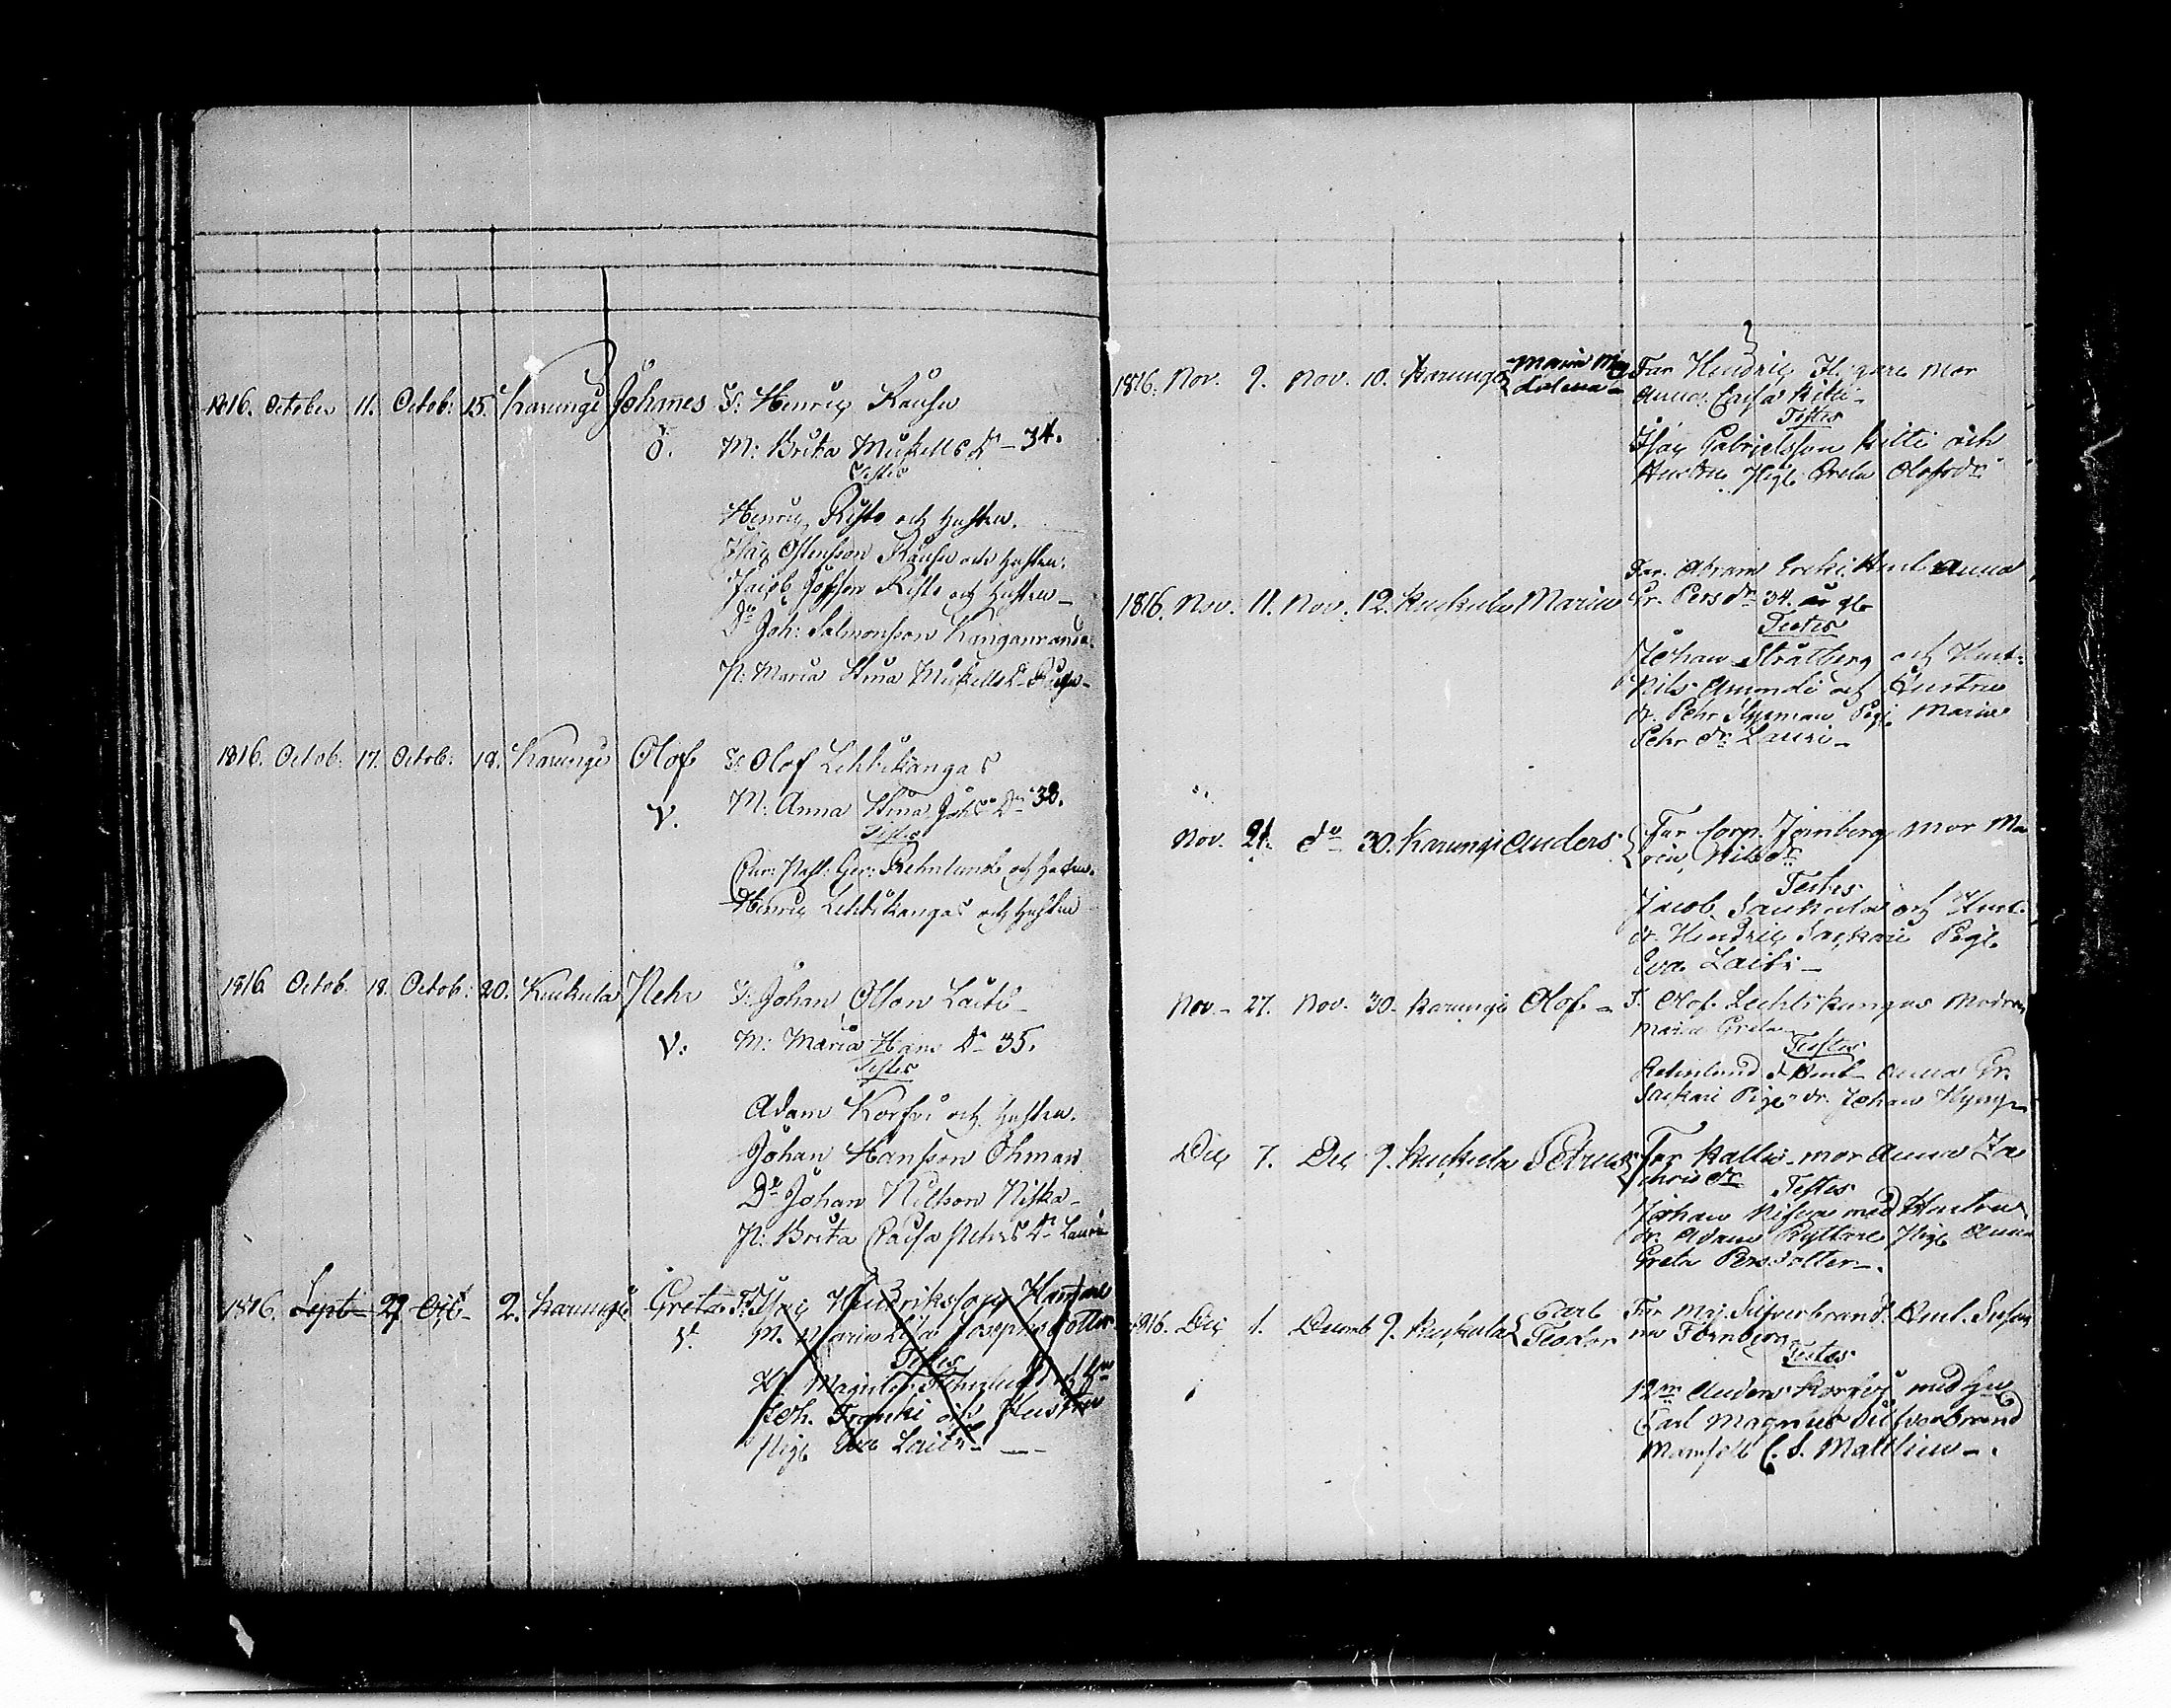 1816. October 11. Octob: 15. Karungi Johanes F: Henric Rausu
Ö. M: Brita Mickells Dr 34.
Testes
Henric Risto och Hustru.
Isac Ostensson Rausu och Hustru.
Jacob Johsson Risto och Hustru
Dr Joh: Salmonsson Kanganranda
P: Maria Stina Mickells Dr
1816. Octob. 17. Octob: 18. Karungi Olof F: Olof Lehtikangas
V. M: Anna Stina Johs Dr 38.
Testes
Rehnlund och Hustru.
Henric Lehtikangas och Hustru
1816 Octob. 18. Octob: 20. Kuckula Pehr F: Johan Olsson Laiti
V: M: Maria Hans Dr 35.
Testes
Adam Korfvi och Hustru.
Johan Hansson Öhman
Dr Johan Nilsson Niska
P: Brita Caisa Pehrs Dr Lauri
1816. Sept 29 Oct 2. Karungi Greta F. Isac Hendriksson
V. M. Maria Lisa Josephs Dotter
Testes
Joh. Franki och Hustru
Pig. Eva Laiti
1816. Nov. 9. Nov. 10. Karungi Maria Mag Far Hendric mor
dalena Anna Caisa Kitti
Testes
Isac Gabrielsson Kitti och
Hustru Pig. Greta Olofsdr
Far. Abram Hust Anna
1816. Nov. 11. Nov. 12. Kuckula Maria Gr. Persdr 34. år gl
Testes
Johan Strålberg och Hust.
Nils och Hustru
dr. Pehr Pig. Maria
Pehrs dr Lauri
Nov. 21. do 30. Karungi Anders Far Corp. mor Ma
ria Nilsdr
Testes
Jacob och Hust.
dr. Hendric Sackari Pig.
Eva Laiti
Nov. 27. Nov. 30. Karungi Olof F. Olof Lechtikangas Modren
Maria Greta
Testes
Rehnlund & Hust Anna Gr.
Sackari Pig. dr. Johan
Dec 7. Dec 9. Kuckula Petrus Far Kallio mor Anna Za
chrisdr Testes
Johan med Hustru
dr. Adam Ryttare Pig. Anna
Greta Persdotter.
1816. Dec 1. Decemb 9. Kuckula Carl Far Maj. Silfverbrand Hust. Susan
Teodor na
Testes
Anders med Hu
Carl Magnus Silfverbrand
Mamsell C. S.